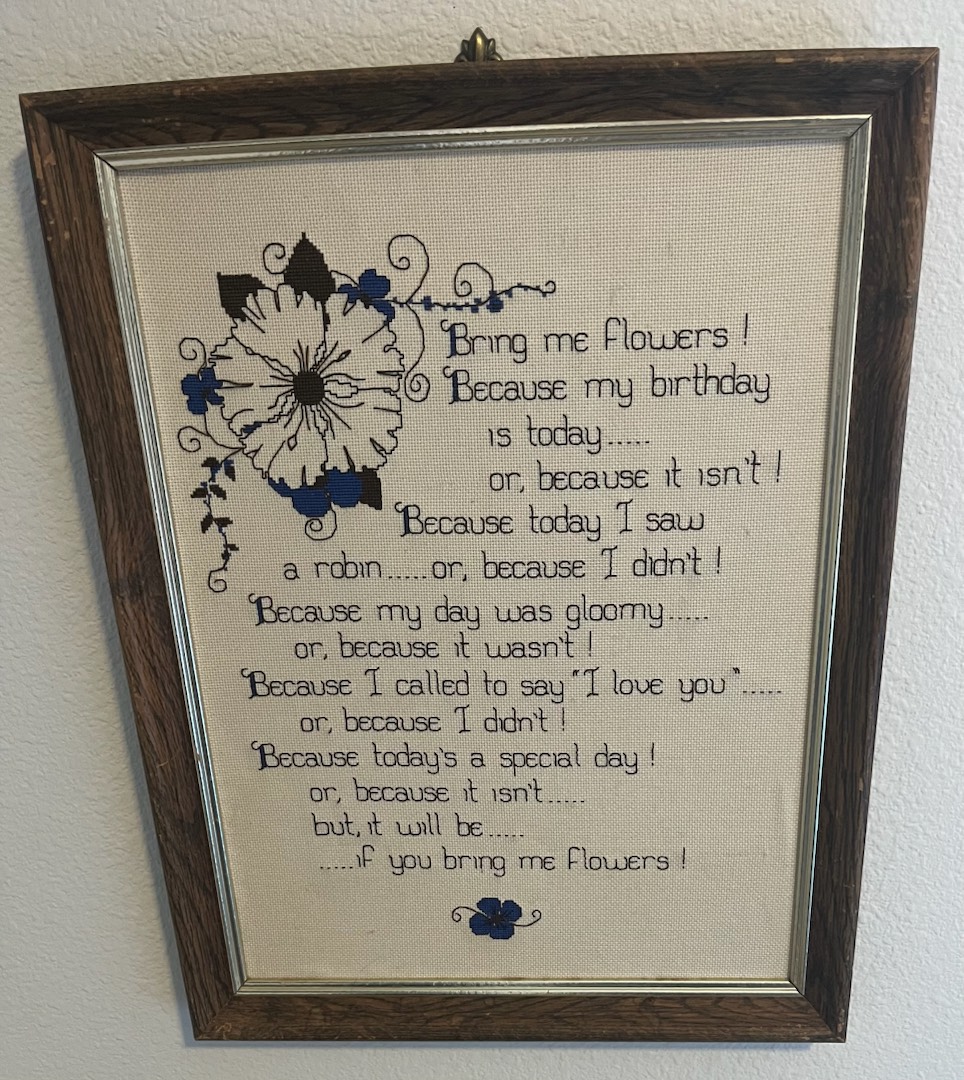 Bring me flowers !
Because my birthday
is today.....
or, because it isn't !
Because today I saw
a robin.....or, because I didn't !
Because my day was gloomy.....
or, because it wasn't !
Because I called to say "I love you".....
or, because I didn't !
Because today's a special day !
or, because it isn't.....
but, it will be.....
.....if you bring me flowers !